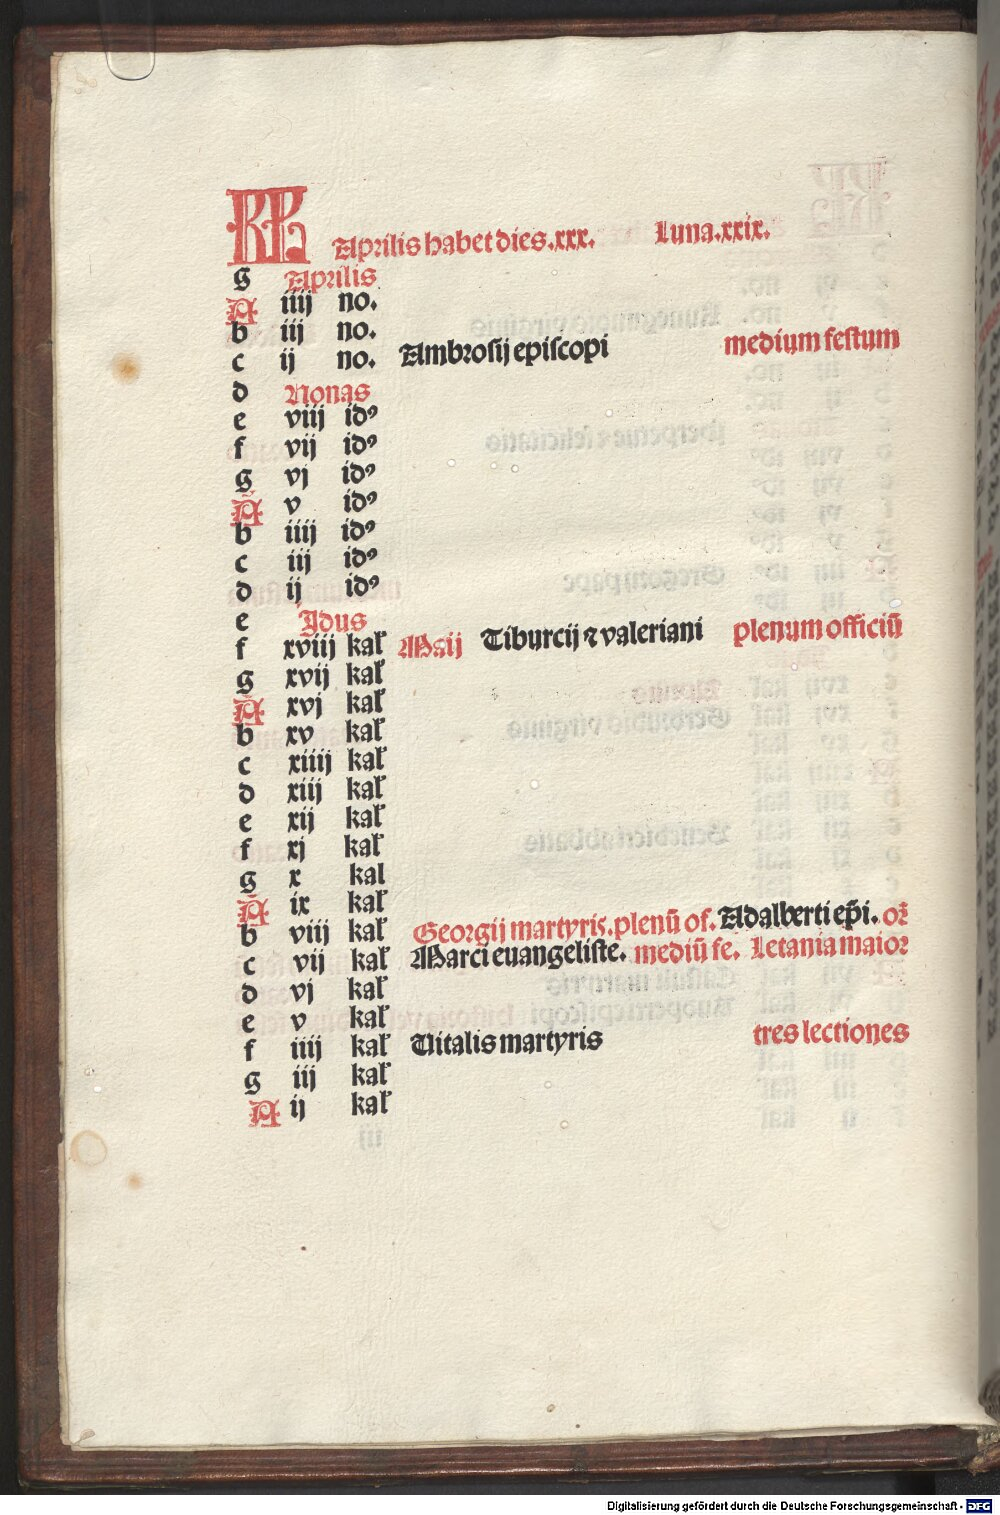 KL Aprilis habet dies .xxx. Luna .xxix.
g Aprilis
A iiij no.
b iij no.
c ij no. Ambrosij episcopi medium festum
d Nonas
e viij idꝰ
f vij idꝰ
g vj idꝰ
A v idꝰ
b iiij idꝰ
c iij idꝰ
d ij idꝰ
e Idus
f xviij kal̕ Maij Tiburcij ⁊ valeriani plenum officiū
g xvij kal̕
A xvj kal̕
b xv kal̕
c xiiij kal̕
d xiij kal̕
e xij kal̕
f xj kal̕
g x kal
A ix kal̕
b viij kal̕ Georgij martyris. plenū of. Adalberti ep̄i. or̄
c vij kal̕ Marci euangeliste. mediū fe. Letania maior
d vj kal̕
e v kal̕
f iiij kal̕ Uitalis martyris tres lectiones
g iij kal̕
A ij kal̕
Digitalisierung gefördert durch die Deutsche Forschungsgemeinschaft - DFG